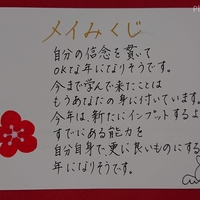 メイみくじ
自分の信念を貫いて
OKな年になりそうです。
今まで学んで来たことは
もうあなたの身に付いています。
今年は、新たにインプットするよ
すでにある能力を
自分自身で更に良いものにする
年になりそうです。